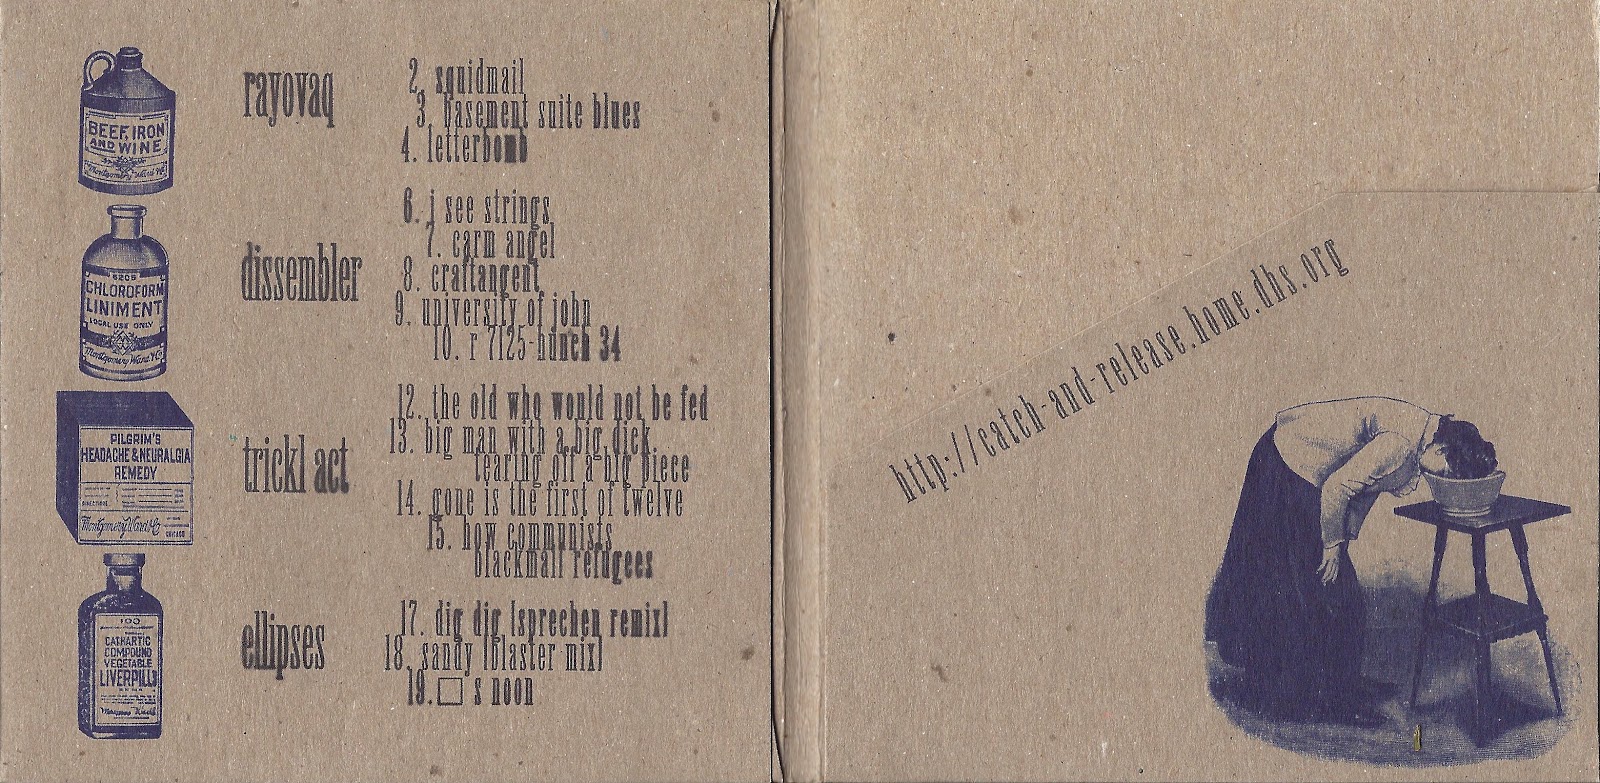 BEEF, IRON
AND WINE
Montgomery Ward & Co
rayovaq
2. squidmail
3. basement suite blues
4. letterbomb
CHLOROFORM
LINIMENT
LOCAL USE ONLY
Montgomery Ward & Co
dissembler
6. i see strings
7. carm angel
8. craftangent
9. university of john
10. r 7125-hunch 34
PILGRIM'S
HEADACHE & NEURALGIA
REMEDY
Montgomery Ward & Co
CHICAGO
trickl act
12. the old who would not be fed
13. big man with a big dick
tearing off a big piece
14. gone is the first of twelve
15. how communists
blackmail refugees
100
CATHARTIC
COMPOUND
VEGETABLE
LIVERPILLS
ellipses
17. dig dig [sprechen remix]
18. sandy [blaster mix]
19. □ s noon
http://catch-and-release.home.dhs.org